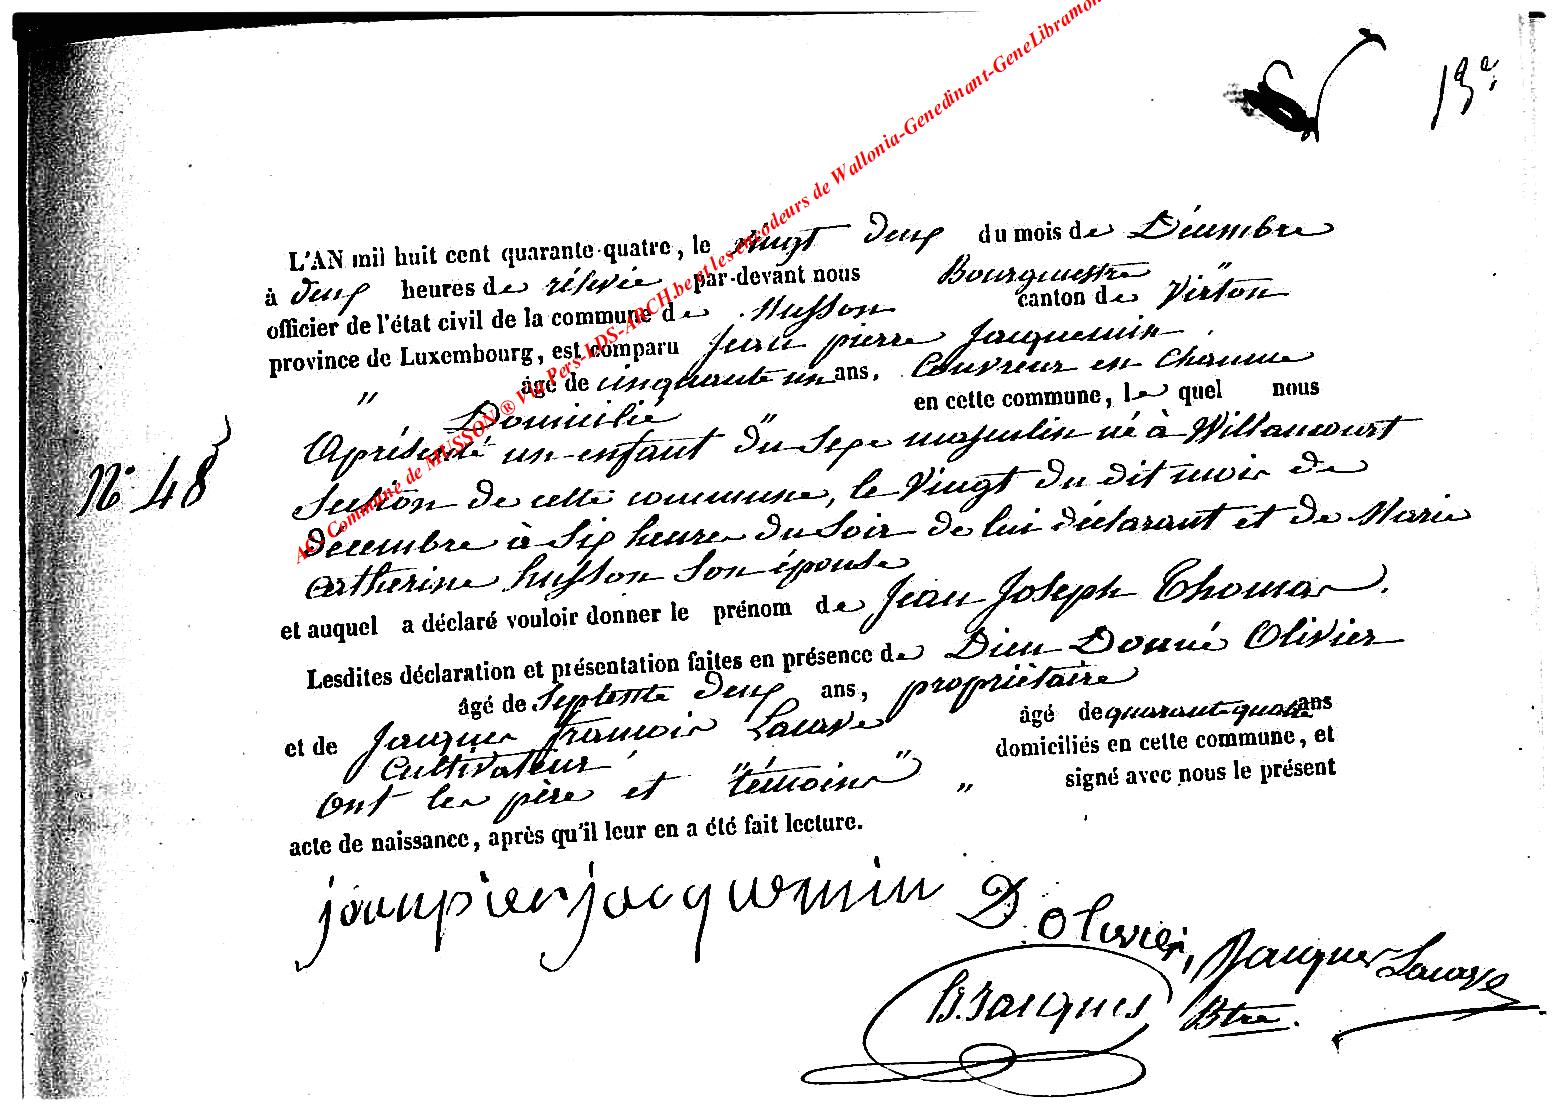 13e
AC Commune de MUSSON ® Via Pers-LDS-ARCH.be et les encodeurs de Wallonia-Genedinant-GeneLibramon
L'AN mil huit cent quarante-quatre, le vingt deux du mois de Décembre
à deux heures de rélevée par-devant nous Bourgmestre "
officier de l'état civil de la commune de Musson canton de Virton
province de Luxembourg, est comparu Jean pierre Jacquemin.
" âgé de cinquante un ans, Couvreur en Chaume
Domicilié " en cette commune, le quel nous
Aprésenté un enfant du Sexe masculin né à Willancourt
N° 48
Section de cette commune, le Vingt du dit mois de
decembre à Six heures du Soir de lui déclarant et de Marie
Catherine husson Son épouse
et auquel a déclaré vouloir donner le prénom de Jean Joseph Thomas.
Lesdites déclaration et présentation faites en présence de Dieu Donné Olivier
âgé de Septente deux ans, propriétaire
et de Jacques francois Lavaxe âgé de quarante quatre ans
Cultivateur domiciliés en cette commune, et
Ont les père et "témoins" " signé avec nous le présent
acte de naissance, après qu'il leur en a été fait lecture.
jeanpierjacquemin D. Olivier, Jacques
B. Jacques Btre.